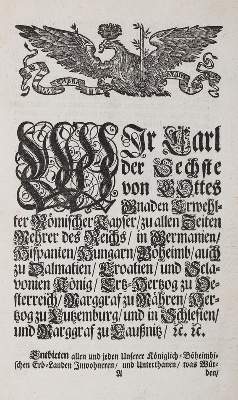 WIr Carl
der Sechste
von GOttes
Gnaden Erwehl-
ter Römischer Kayser/ zu allen Zeiten
Mehrer des Reichs/ in Germanien/
Hispanien/ Hungarn/ Böheimb/ auch
zu Dalmatien/ Croatien/ und Scla-
vonien König/ Ertz-Hertzog zu Oe-
sterreich/ Marggraf zu Mähren/ Her-
tzog zu Lützenburg/ und in Schlesien/
und Marggraf zu Laußnitz/ ꝛc. ꝛc.
Entbieten allen und jeden Unserer Königlich-Böheimbi-
schen Erb-Landen Innwohnern/ und Unterthanen/ was Wür-
A
den/